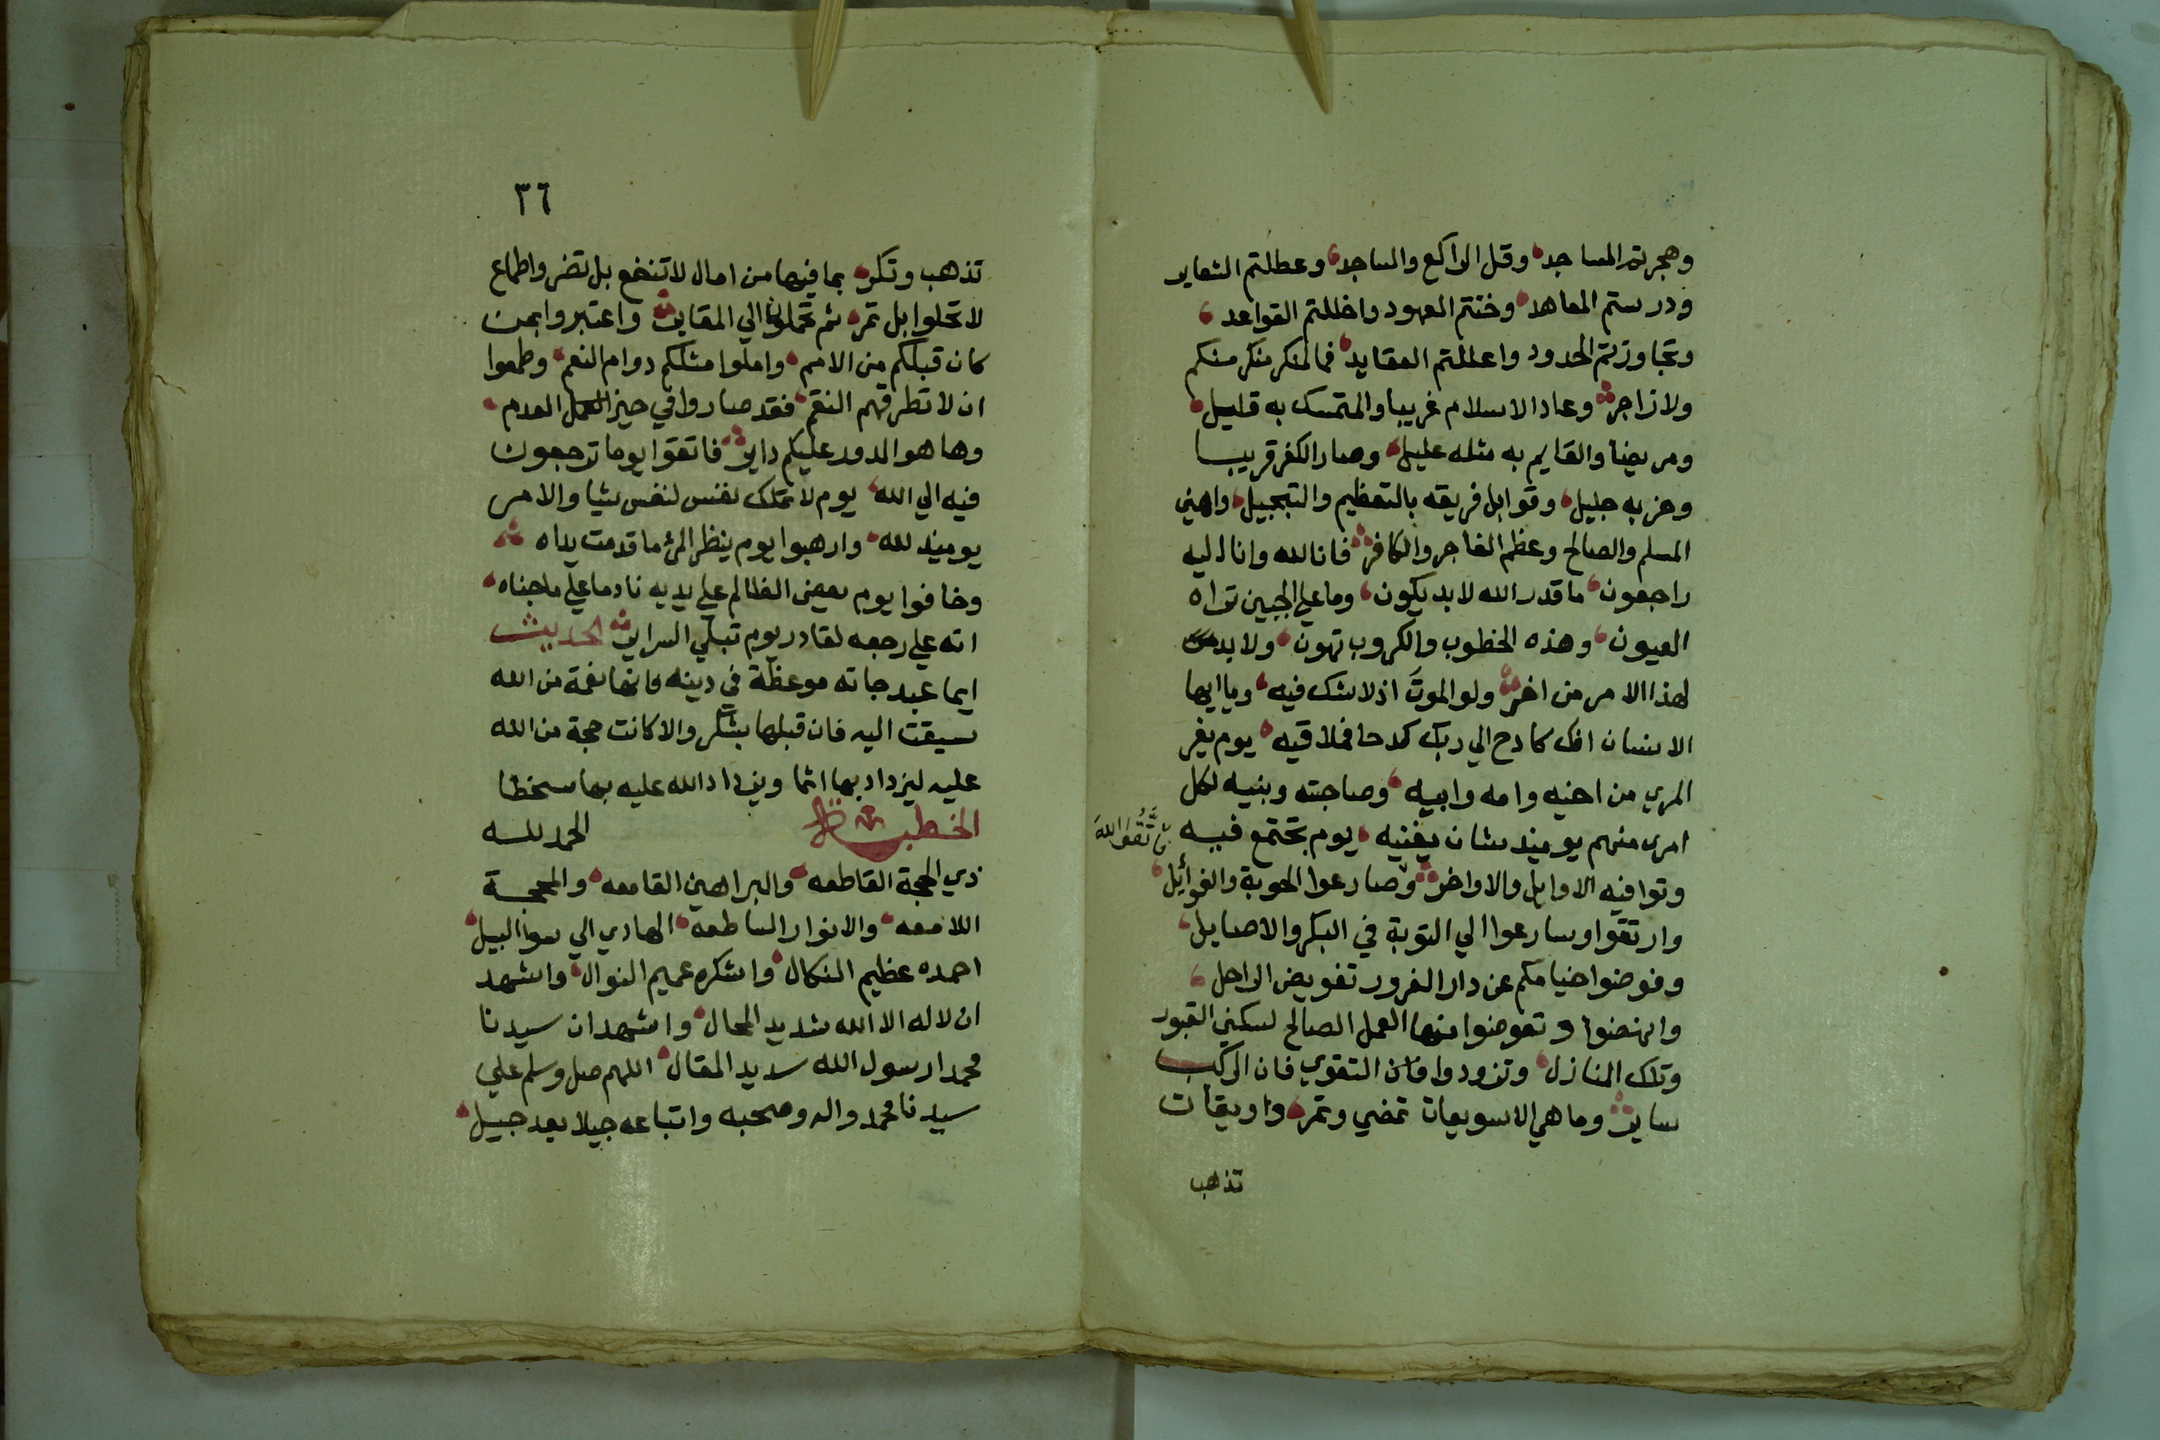 وهجرتم المساجد وقل الراكع والساجد وعطلتم الشعاير
ودرستم المعاهد وخنتم العهود واخللتم القواعد
وتجاوزتم الحدود واعللتم العقايد فما لمنكر منكر منكم
ولا زاجر وعاد الاسلام غريبا والمتمسك به قليل
ومريضا والقايم به مثله عليل وصار الكفر قريبا
وحزبه جليل وقوابل فريقه بالتعظيم والتبجيل واهين
المسلم والصالح وعظم الفاجر والكافر فانا لله وانا اليه
راجعون ما قدر الله لابد يكون وما على الجبين تراه
العيون وهذه الخطوب والكروب تهون ولا بد
لهذا الامر من اخر ولو الموت اذ لا شك فيه ويا ايها
الانسان انك كادح الي ربك كدحا فملاقيه يوم يفر
المرء من اخيه وامه وابيه وصاحبته وبنيه لكل
امرئ منهم يوميذ شان يغنيه يوم تجتمع فيه
فاتقوا الله
وتوافيه الاوايل والاواخر وصارعوا الحوبة والغوائل
وارتقوا وسارعوا الي التوبة في البكر والاصايل
وفوضوا خيامكم عن دار الغرور تفويض الراحل
وانهضوا وتعوضوا منها العمل الصالح لسكني القبور
وتلك المنازل وتزودوا فان التقوي فان الركب
ساير وما هي الا سويعات تمضي وتمر واويقات
تذهب
٣٦
تذهب وتكر بما فيها من امال لا تنفع بل تضر واطماع
لا تحلوا بل تمر ثم تحملون الي المقابر واعتبروا بمن
كان قبلكم من الامم واملوا مثلكم دوام النعم وطمعوا
ان لا تطرقهم النقم فقد صاروا في حيز العدم
وها هو الدور عليكم داير فاتقوا يوما ترجعون
فيه الي الله يوم لا تملك نفس لنفس شيا والامر
يوميذ لله وارهبوا يوم ينظر المرئ ما قدمت يداه
وخافوا يوم يعض الظالم علي يديه نادما علي ما جناه
انه علي رجعه لقادر يوم تبلي السراير الحديث
ايما عبد جاته موعظة في دينه فانها نعمة من الله
سيقت اليه فان قبلها بشكر والا كانت حجة من الله
عليه ليزداد بها اثما ويزداد الله عليه بها سخطا
الخطبة الحمد لله
ذي الحجة القاطعه والبراهين القامعه والمحجة
اللامعه والانوار الساطعه الهادي الي سوا السبيل
احمده عظيم النكال واشكره عميم النوال واشهد
ان لا اله الا الله شديد المحال واشهد ان سيدنا
محمدا رسول الله سديد المقال اللهم صل وسلم علي
سيدنا محمد واله وصحبه واتباعه جيلا بعد جيل